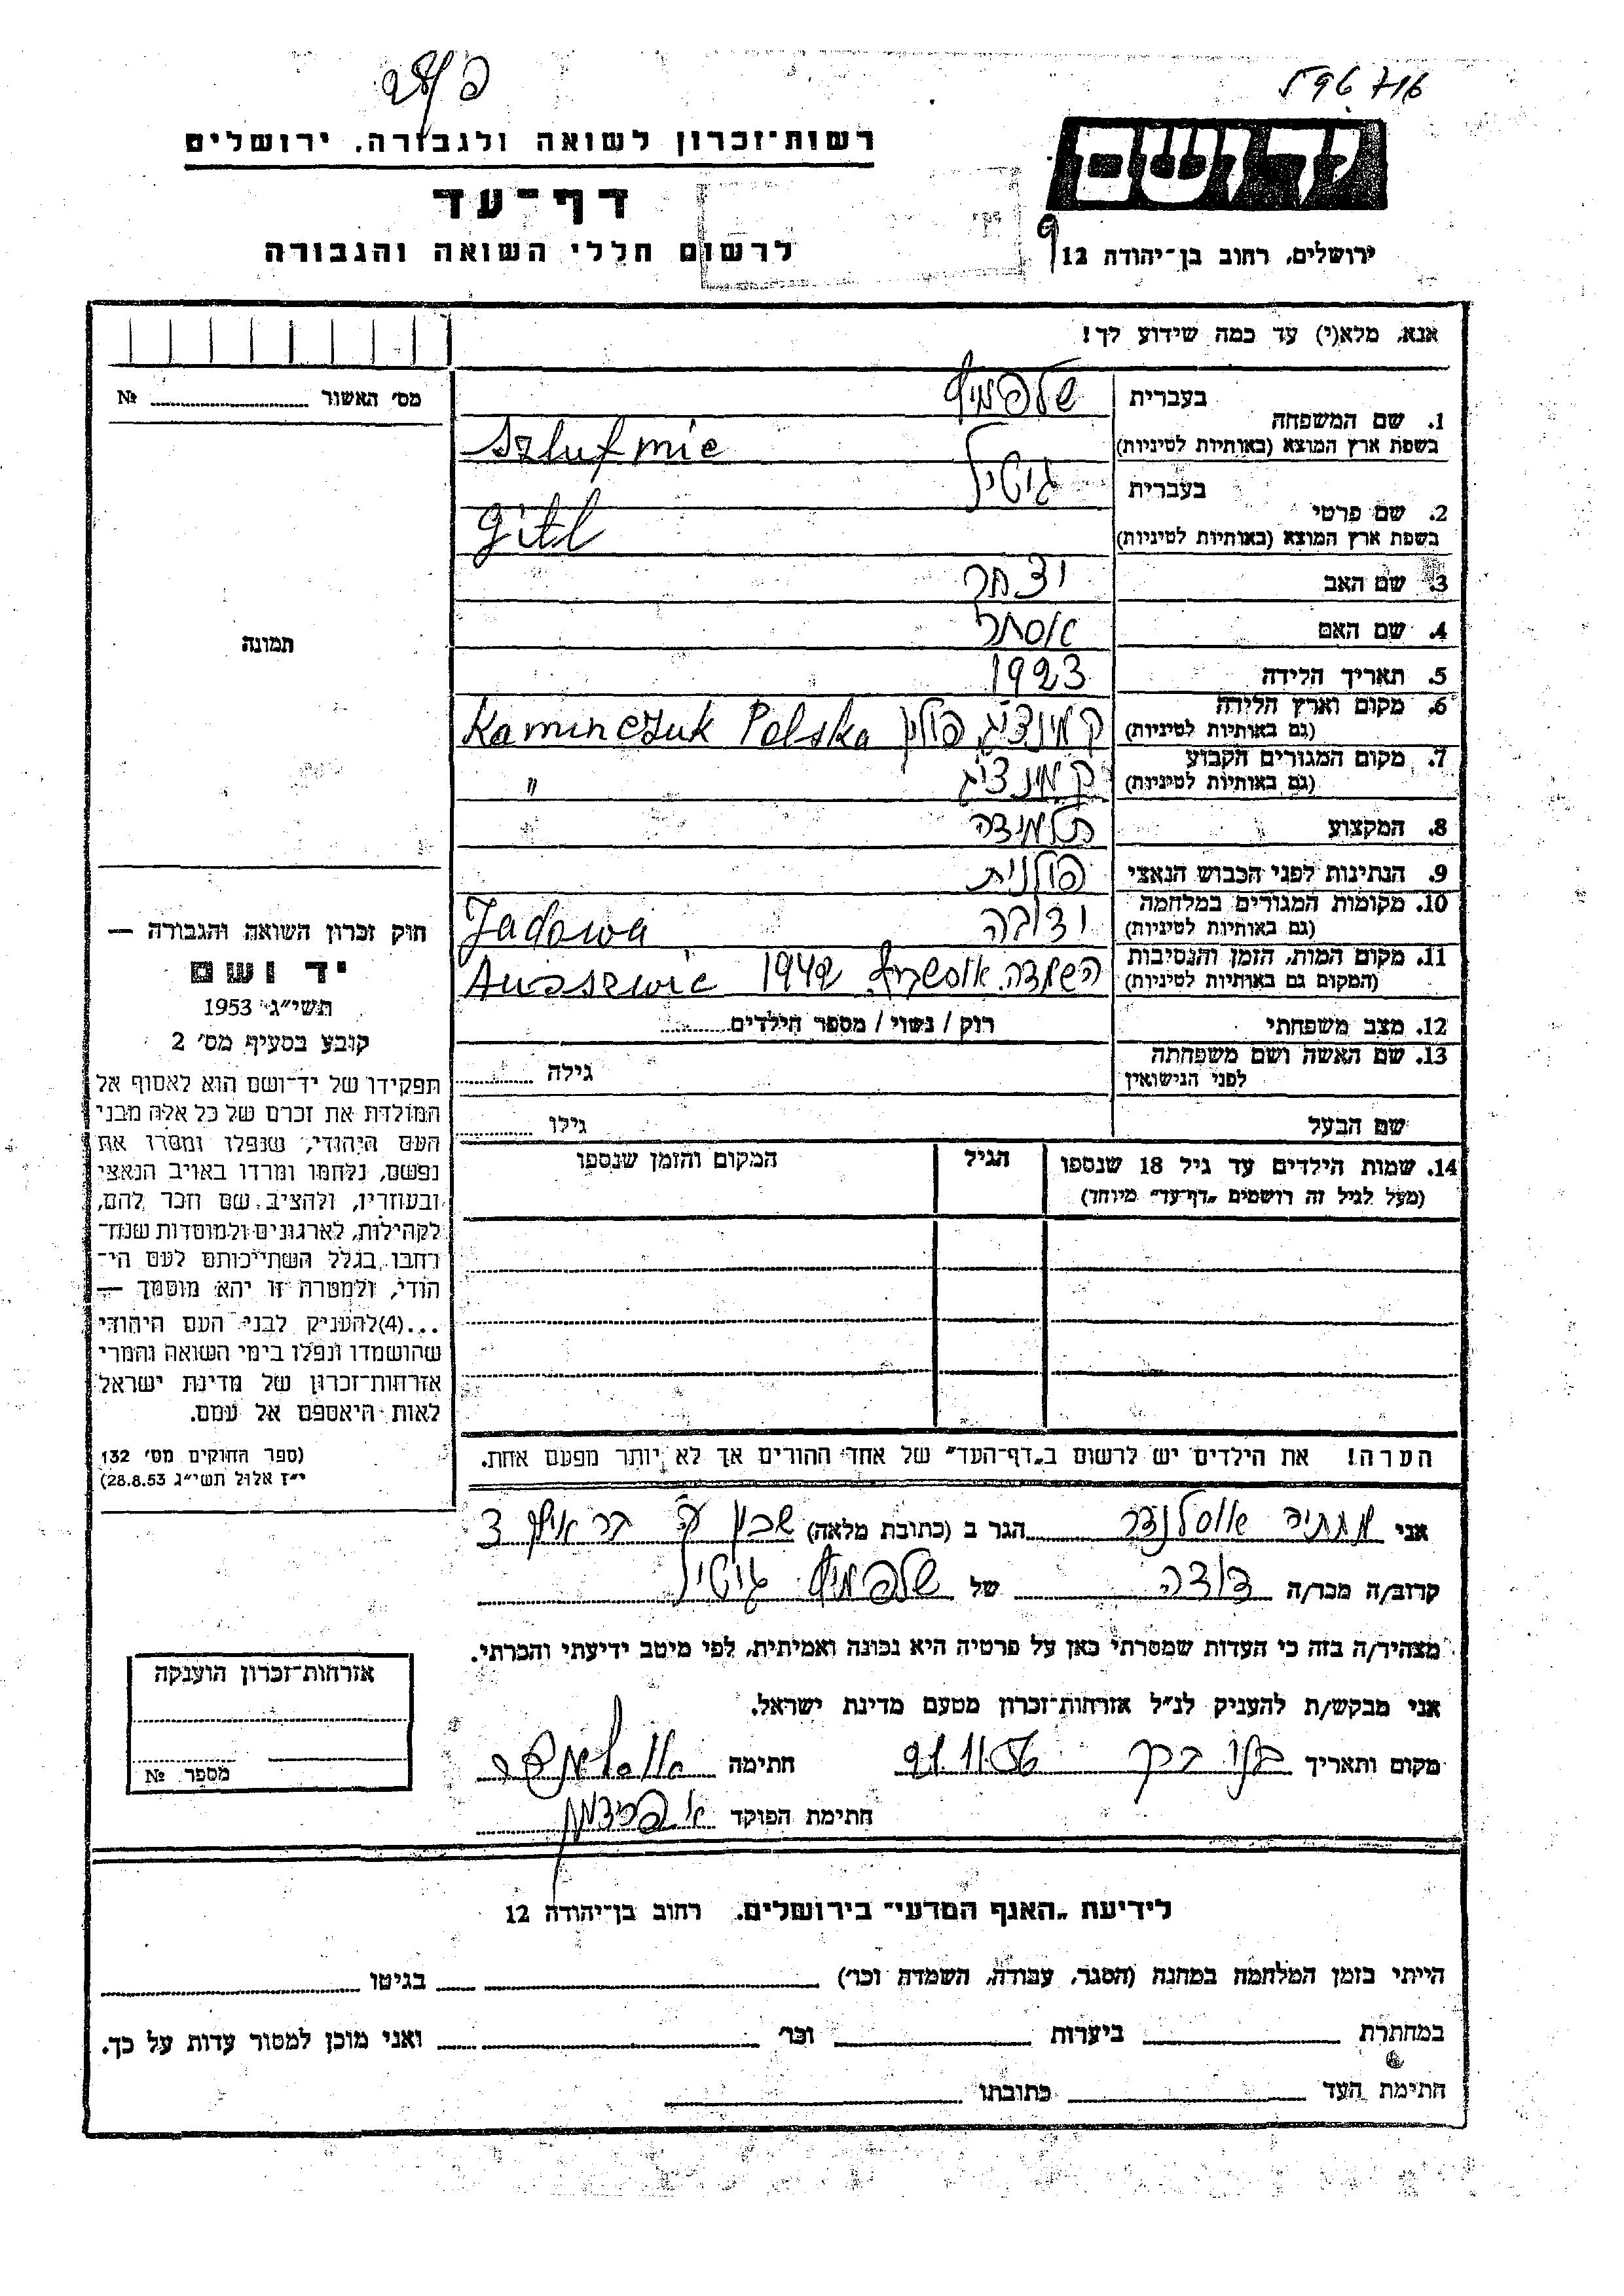 596716
רשות־זכרון לשואה ולגבורה, ירושלים
יד ושם
דף־עד
לרשום חללי השואה והגבורה
ירושלים, רחוב בן־יהודה 12
אנא, מלא(י) עד כמה שידוע לך!
מס׳ האשור № 
1. שם המשפחה
בעברית שלפמיץ
בשפת ארץ המוצא (באותיות לטיניות) Szlufmic
2. שם פרטי
בעברית גיטיל
בשפת ארץ המוצא (באותיות לטיניות) Gitl
3. שם האב יצחק
4. שם האם אסתר
5. תאריך הלידה 1923
6. מקום וארץ הלידה (גם באותיות לטיניות) קמינציג פולין Kaminczuk Polska
7. מקום המגורים הקבוע (גם באותיות לטיניות) קמינציג "
8. המקצוע תלמידה
9. הנתינות לפני הכבוש הנאצי פולנית
10. מקומות המגורים במלחמה (גם באותיות לטיניות) ידובה Jadowa
11. מקום המות, הזמן והנסיבות (המקום גם באותיות לטיניות) השמדה אושביץ 1942
12. מצב משפחתי רוק / נשוי / מספר הילדים
13. שם האשה ושם משפחתה לפני הנישואין גילה
שם הבעל גילו
14. שמות הילדים עד גיל 18 שנספו הגיל המקום והזמן שנספו
(מעל לגיל זה רושמים „דף־עד" מיוחד)
הערה! את הילדים יש לרשום ב„דף־העד" של אחד ההורים אך לא יותר מפעם אחת.
תמונה
חוק זכרון השואה והגבורה —
יד ושם
תשי״ג 1953
קובע בסעיף מס׳ 2
תפקידו של יד־ושם הוא לאסוף אל
המולדת את זכרם של כל אלה מבני
העם היהודי, שנפלו ומסרו את
נפשם, נלחמו ומרדו באויב הנאצי
ובעוזריו, ולהציב שם וזכר להם,
לקהילות, לארגונים ולמוסדות שנח־
רבו בגלל השתייכותם לעם הי־
הודי, ולמטרה זו יהא מוסמך —
...(4)להעניק לבני העם היהודי
שהושמדו ונפלו בימי השואה והמרי
אזרחות־זכרון של מדינת ישראל
לאות היאספם אל עמם.
(ספר החוקים מס׳ 132
י״ז אלול תשי״ג 28.8.53)
אני אוסלנדר הגר ב (כתובת מלאה)
קרוב/ה מכר/ה דודה של שלפמיץ גיטיל
מצהיר/ה בזה כי העדות שמסרתי כאן על פרטיה היא נכונה ואמיתית, לפי מיטב ידיעתי והכרתי.
אני מבקש/ת להעניק לנ״ל אזרחות־זכרון מטעם מדינת ישראל.
מקום ותאריך בני ברק 21.11.56 חתימה
חתימת הפוקד א. פרידמן
אזרחות־זכרון הוענקה
מספר №
לידיעת „האגף המדעי" בירושלים, רחוב בן־יהודה 12
הייתי בזמן המלחמה במחנה (הסגר, עבודה, השמדה וכו׳) בגיטו
במחתרת ביערות וכו׳ ואני מוכן למסור עדות על כך.
חתימת העד כתובתו